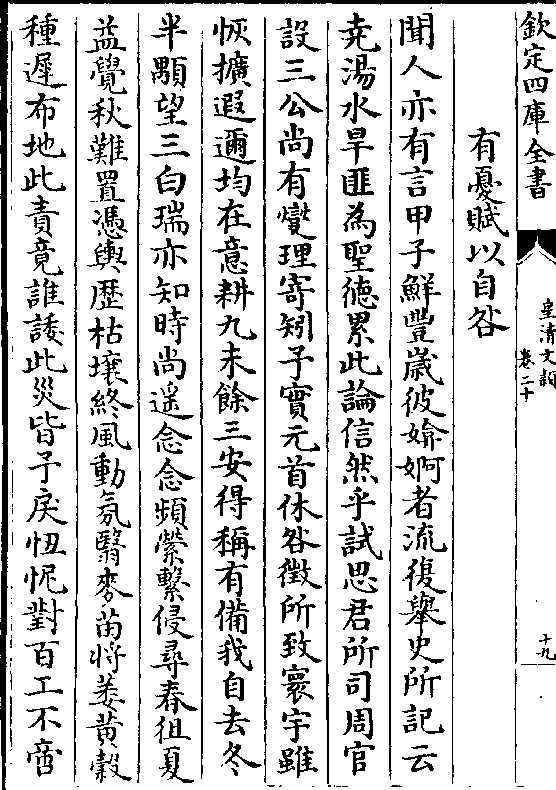 欽定四庫全書
皇清文穎
卷二十
十九
有憂賦以自咎
聞人亦有言甲子鮮豐歲彼媕婀者流復舉史所記云
堯湯水旱匪為聖德累此論信然乎試思君所司周官
設三公尚有爕理寄矧予實元首休咎徵所致寰宇雖
恢擴遐邇均在意耕九未餘三安得稱有備我自去冬
半顒望三白瑞亦知時尚遥念念頻縈繫侵尋春徂夏
益覺秋難置憑輿歴枯壤終風動氛翳麥苗將萎黄穀
種遲布地此責竟誰諉此災皆予戾忸怩對百工不啻